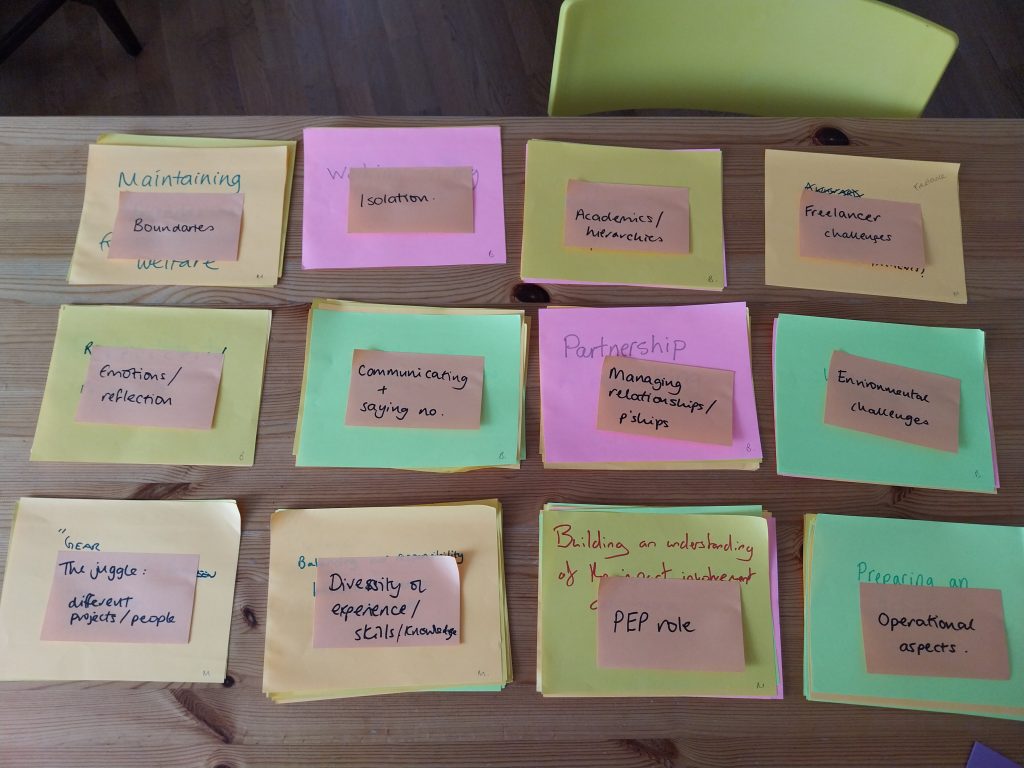 Maintaining
Boundaries
welfare
M
Isolation.
B
Academics/
hierarchies
B
Freelancer
challenges
M
Emotions/
reflection
B
Communicating
+
saying no.
B
Partnership
Managing
relationships/
p'ships
B
Environmental
challenges
B
"GEAR
The juggle:
different
projects/people
M
Diversity of
experience/
skills/knowledge
M.
Building an understanding
of involvement
PEP role
M
Preparing an
Operational
aspects.